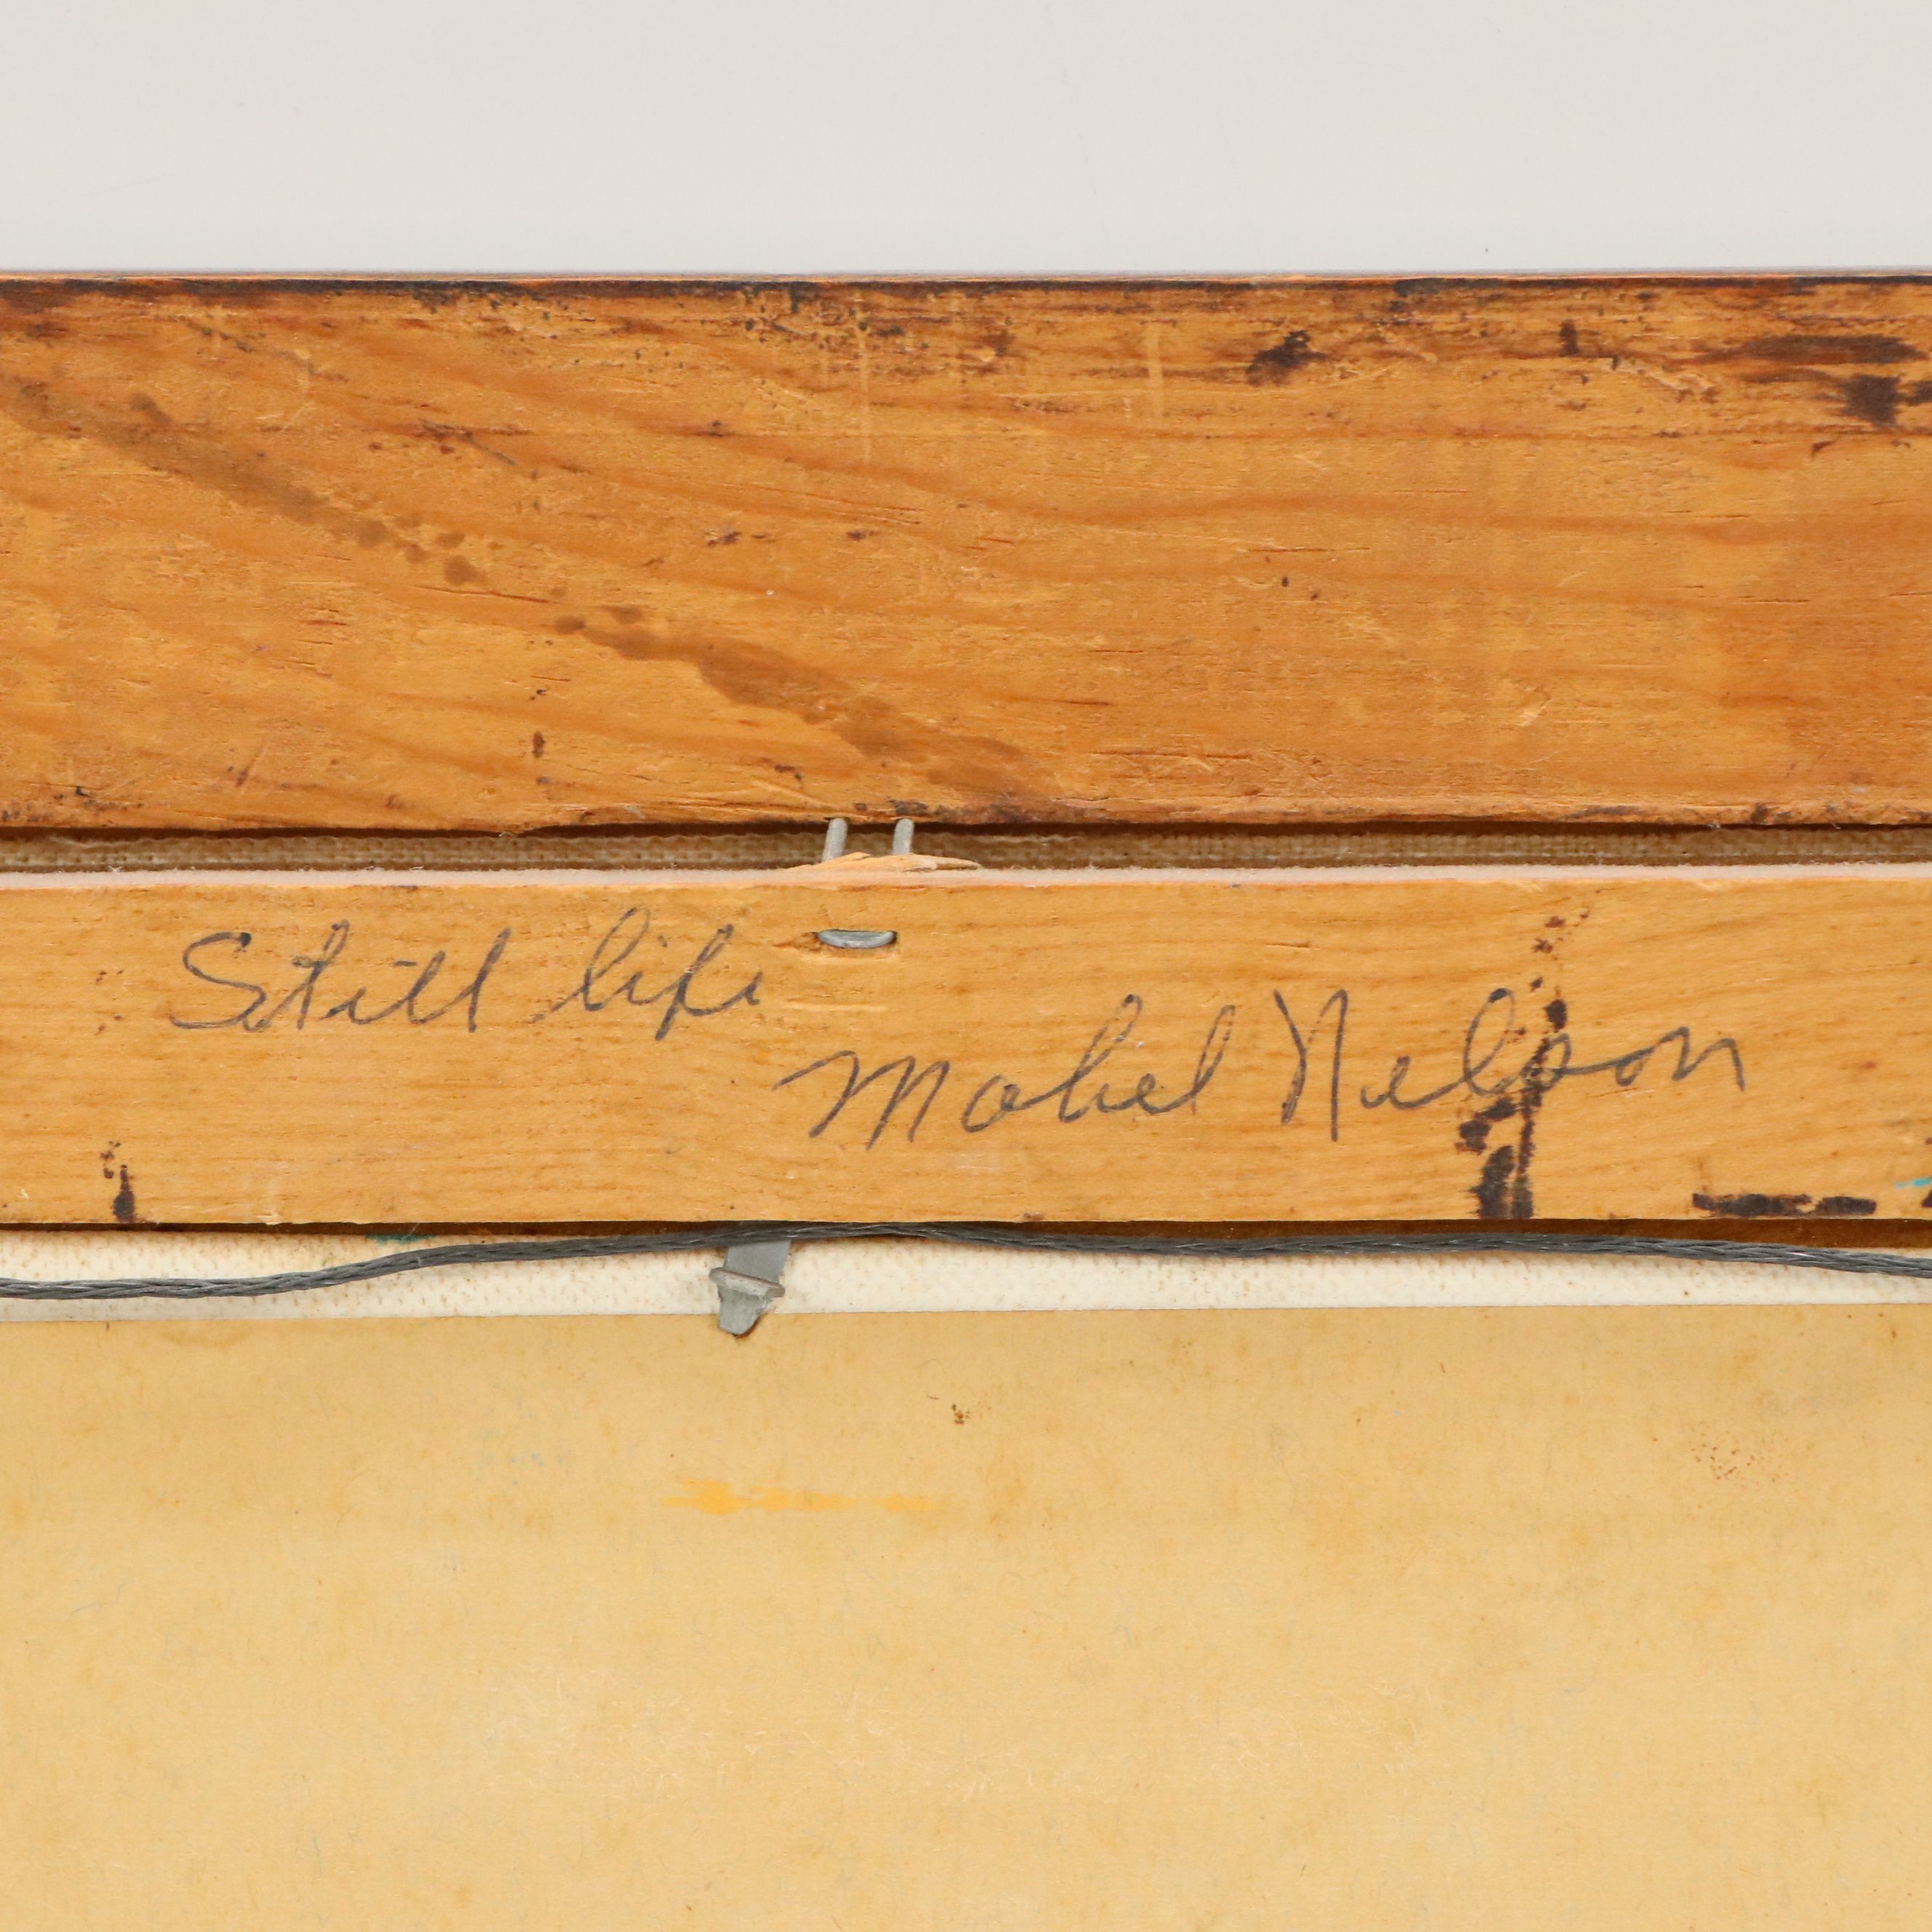 Still life
Mabel Nelson